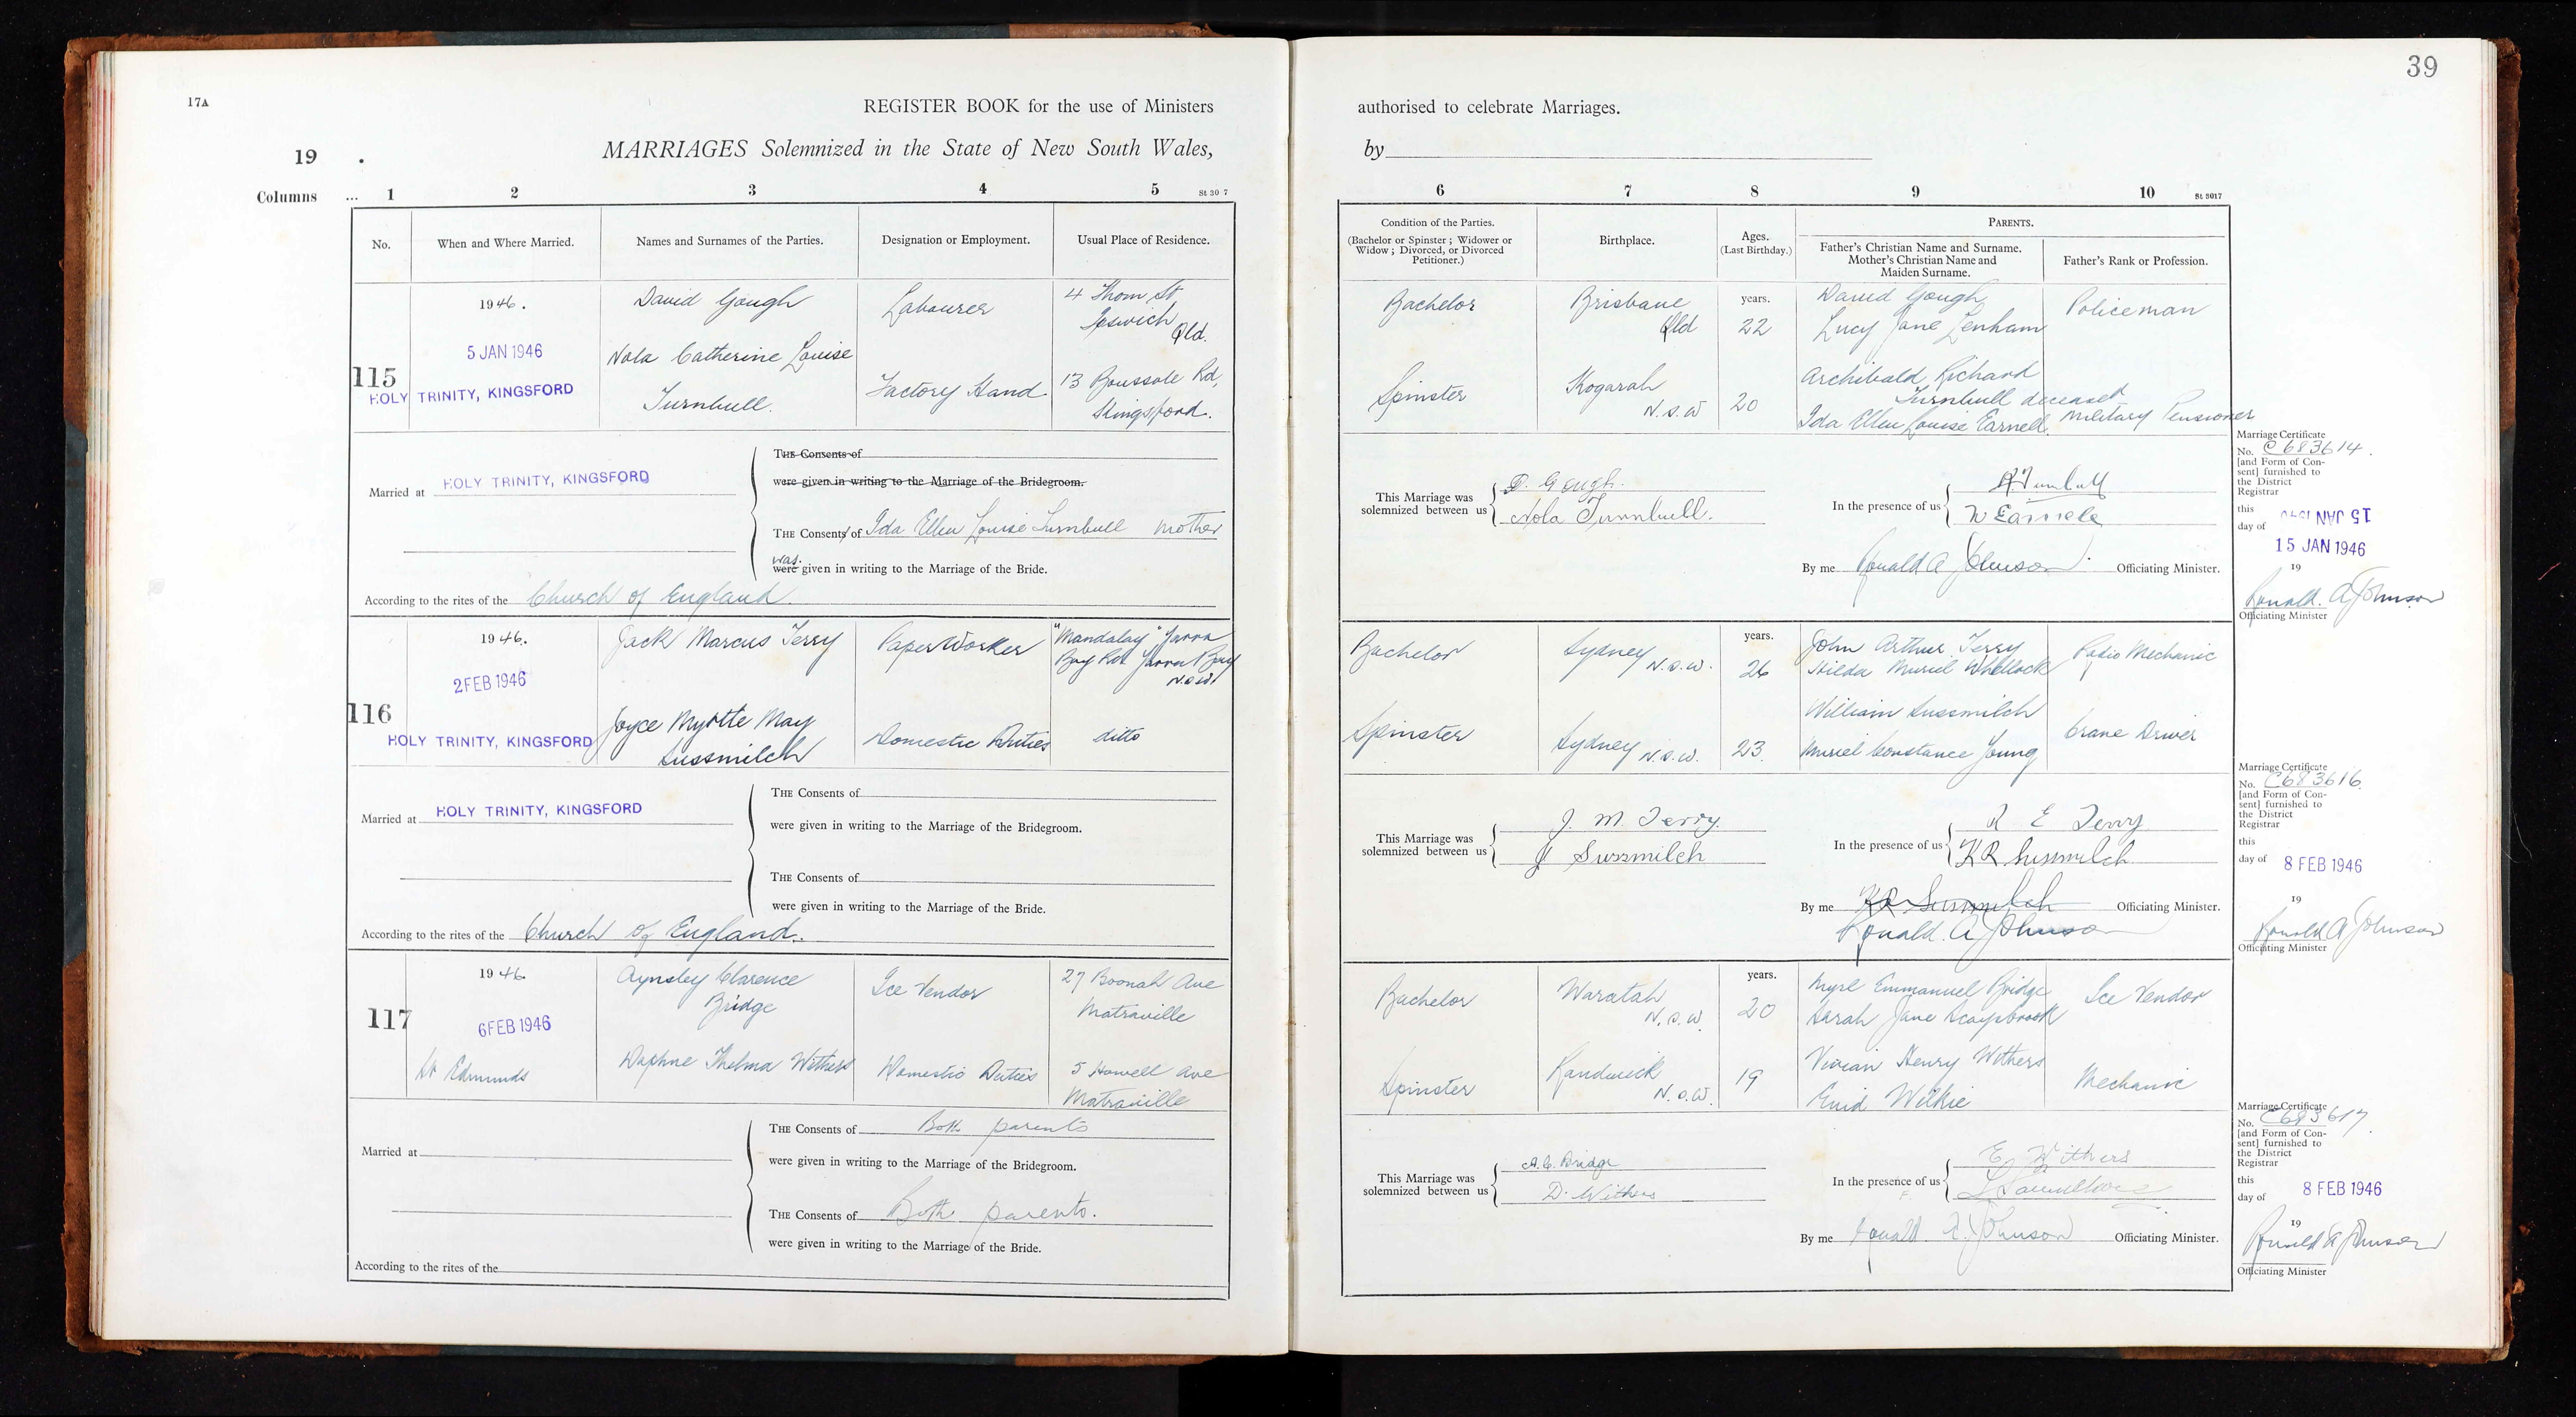 17A
REGISTER BOOK for the use of Ministers
19 .
MARRIAGES Solemnized in the State of New South Wales,
Columns ... 1 2 3 4 5
No. When and Where Married. Names and Surnames of the Parties. Designation or Employment. Usual Place of Residence.
115
1946.
5 JAN 1946
HOLY TRINITY, KINGSFORD
David Gough
Labourer
4 Thom St
Ipswich
Qld.
Nola Catherine Louise
Turnbull.
Factory Hand
13 Boussole Rd,
Kingsford.
Married at HOLY TRINITY, KINGSFORD
THE Consents of
were given in writing to the Marriage of the Bridegroom.
THE Consents of Ida Ellen Louise Turnbull mother
was
were given in writing to the Marriage of the Bride.
According to the rites of the Church of England.
116
1946.
2 FEB 1946
HOLY TRINITY, KINGSFORD
Jack Marcus Terry
Paper Worker
"Mandalay" Yarra
Bay Rd. Yarra Bay
N.S.W.
Joyce Myrtte May
Sussmilch
Domestic Duties
ditto
Married at HOLY TRINITY, KINGSFORD
THE Consents of
were given in writing to the Marriage of the Bridegroom.
THE Consents of
were given in writing to the Marriage of the Bride.
According to the rites of the Church of England.
117
1946
6 FEB 1946
St Edmunds
Aynsley Clarence
Bridge
Ice Vendor
27 Boonah Ave
Matraville
Daphne Thelma Withers
Domestic Duties
5 Howell Ave
Matraville
Married at
THE Consents of Both parents
were given in writing to the Marriage of the Bridegroom.
THE Consents of Both parents.
were given in writing to the Marriage of the Bride.
According to the rites of the
39
authorised to celebrate Marriages.
by
6 7 8 9 10 St 3017
Condition of the Parties.
(Bachelor or Spinster; Widower or
Widow; Divorced, or Divorced
Petitioner.)
Birthplace.
Ages.
(Last Birthday.)
PARENTS.
Father's Christian Name and Surname.
Mother's Christian Name and
Maiden Surname.
Father's Rank or Profession.
Bachelor
Brisbane
Qld
years.
22
David Gough
Lucy Jane Lenham
Policeman
Spinster
Kogarah
N.S.W
20
Archibald Richard
Turnbull deceased
Ida Ellen Louise Earnell.
Military Pensioner
This Marriage was
solemnized between us
D. Gough.
Nola Turnbull.
In the presence of us
By me Ronald A Johnson. Officiating Minister.
Marriage Certificate
No. C683614.
[and Form of Con-
sent] furnished to
the District
Registrar
this
day of
15 JAN 1946
15 JAN 1946
19
Ronald. A Johnson
Officiating Minister
Bachelor
Sydney N.S.W.
years.
26
John Arthur Terry
Hilda Muriel Whellock
Radio Mechanic
Spinster
Sydney N.S.W.
23.
William Sussmilch
Muriel Constance Young
Crane Driver
This Marriage was
solemnized between us
J. M. Terry.
J Sussmilch
In the presence of us
R E Terry
K R Sussmilch
By me K R Sussmilch Officiating Minister.
Ronald. A Johnson
Marriage Certificate
No. C683616.
[and Form of Con-
sent] furnished to
the District
Registrar
this
day of 8 FEB 1946
19
Ronald A Johnson
Officiating Minister
Bachelor
Waratah
N.S.W.
years.
20
Emmanuel Bridge
Sarah Jane
Ice Vendor
Spinster
Randwick
N.S.W.
19
Vivian Henry Withers
Enid Wilkie
Mechanic
This Marriage was
solemnized between us
A. C. Bridge
D. Withers
In the presence of us
E. Withers
By me Ronald. A. Johnson Officiating Minister.
Marriage Certificate
No. C683617.
[and Form of Con-
sent] furnished to
the District
Registrar
this
day of 8 FEB 1946
19
Ronald A Johnson
Officiating Minister